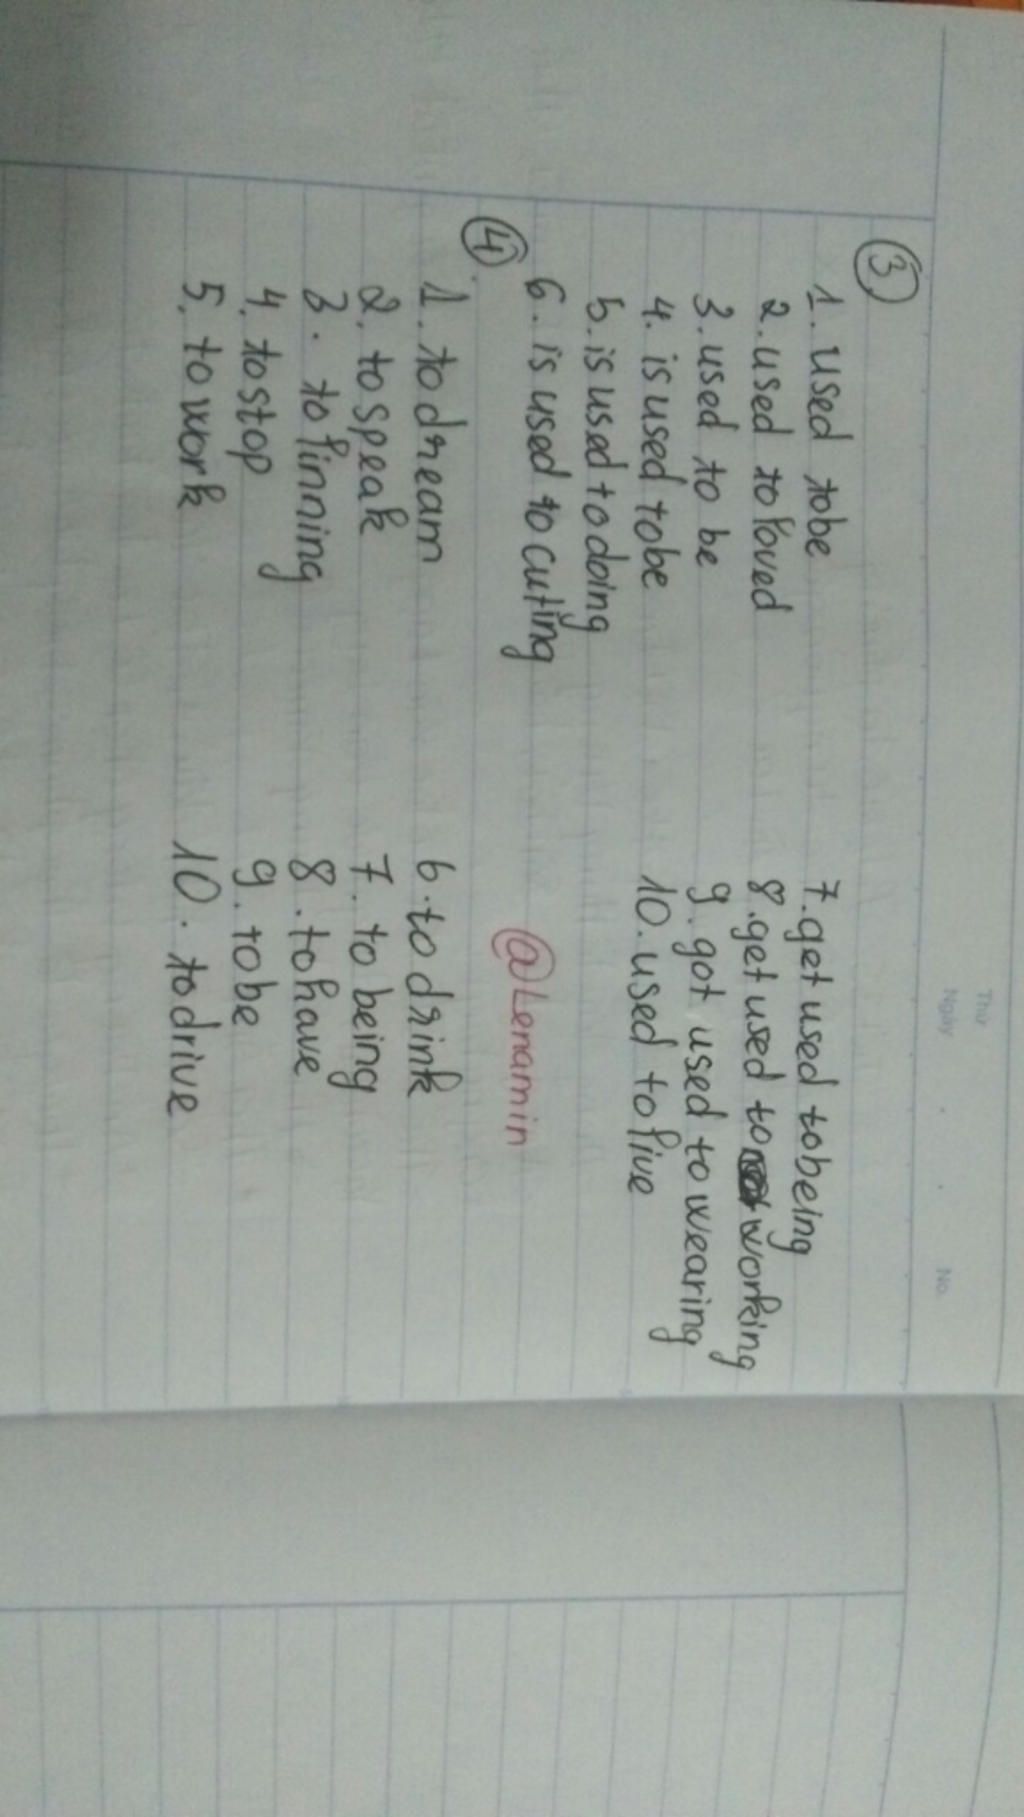 Thứ
Ngày
No.
3
1. used tobe
2. used to loved
3. used to be
4. is used tobe
5. is used to doing
6. is used to cuting
7. get used to being
8. get used to working
9. got used to wearing
10. used to live
@Lenamin
4
1. to dream
2. to speak
3. to
4. to stop
5. to work
6. to drink
7. to being
8. to have
9. to be
10. to drive